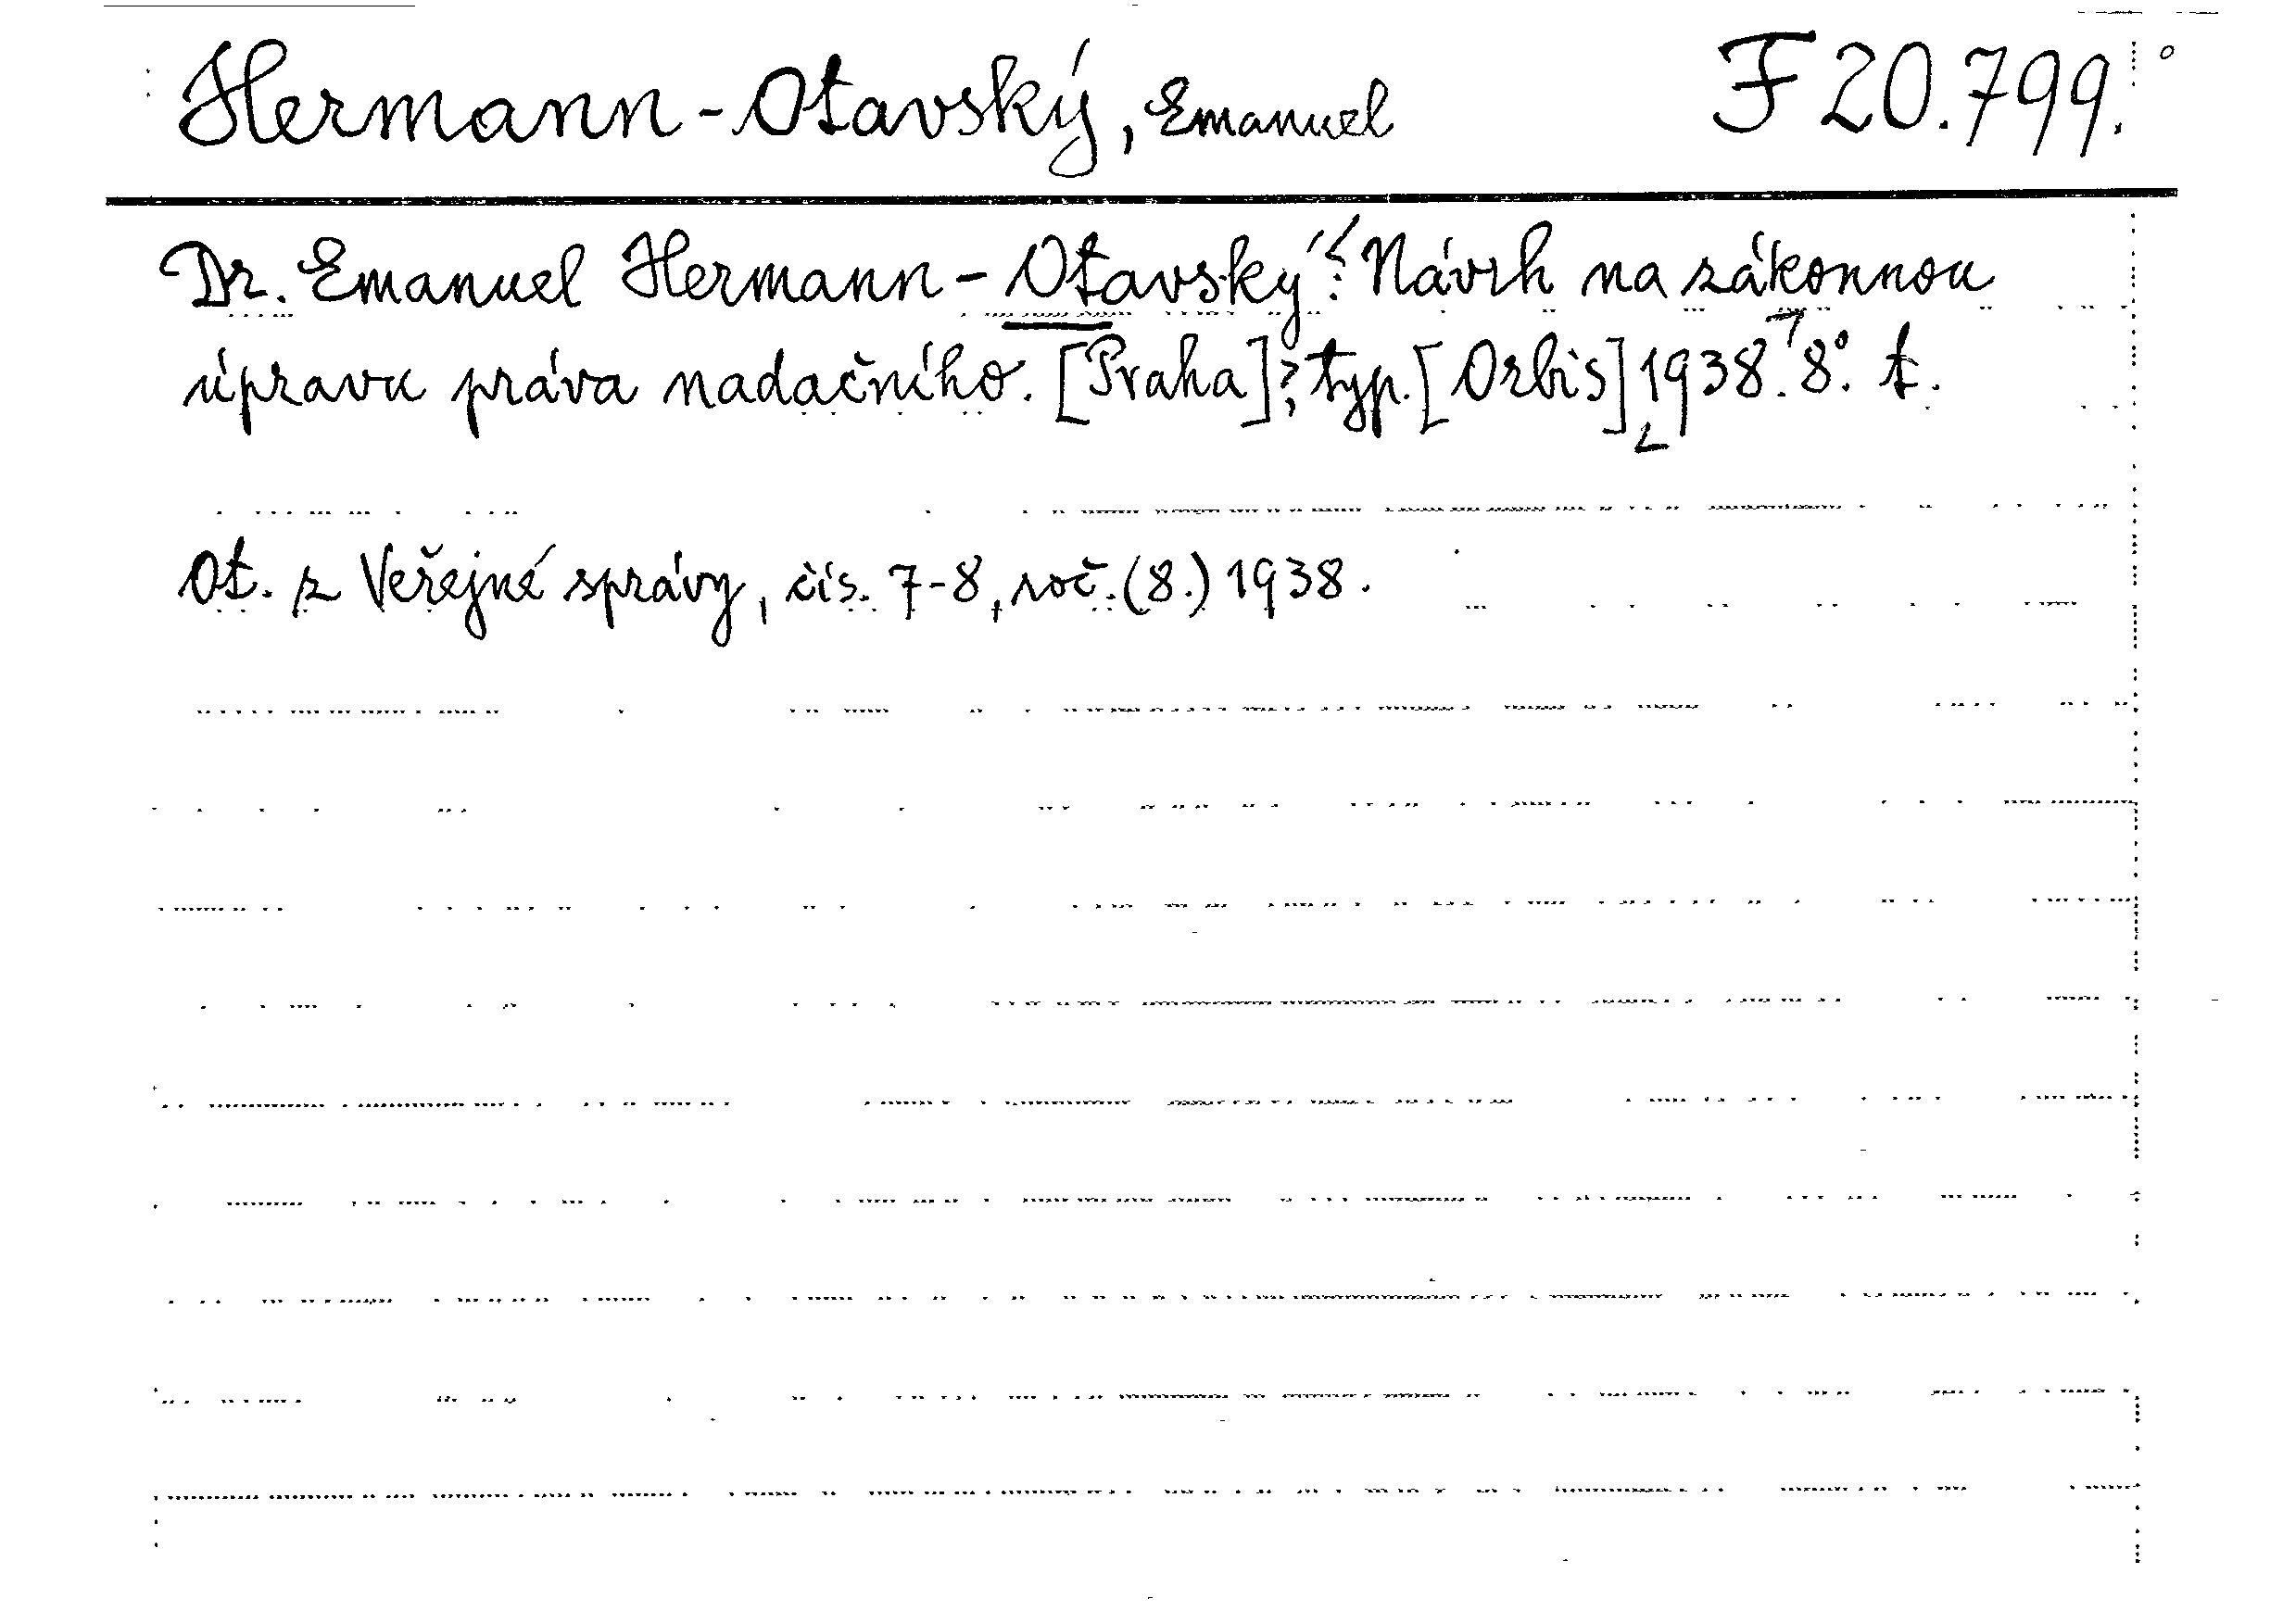 Hermann-Otavský, Emanuel F 20.799.
Dr. Emanuel Hermann-Otavský: Návrh na zákonnou
úpravu práva nadačního. [Praha]; typ. [Orbis] 1938. 8°. t.
Ot. z Veřejné správy, čís. 7-8, roč. (8.) 1938.